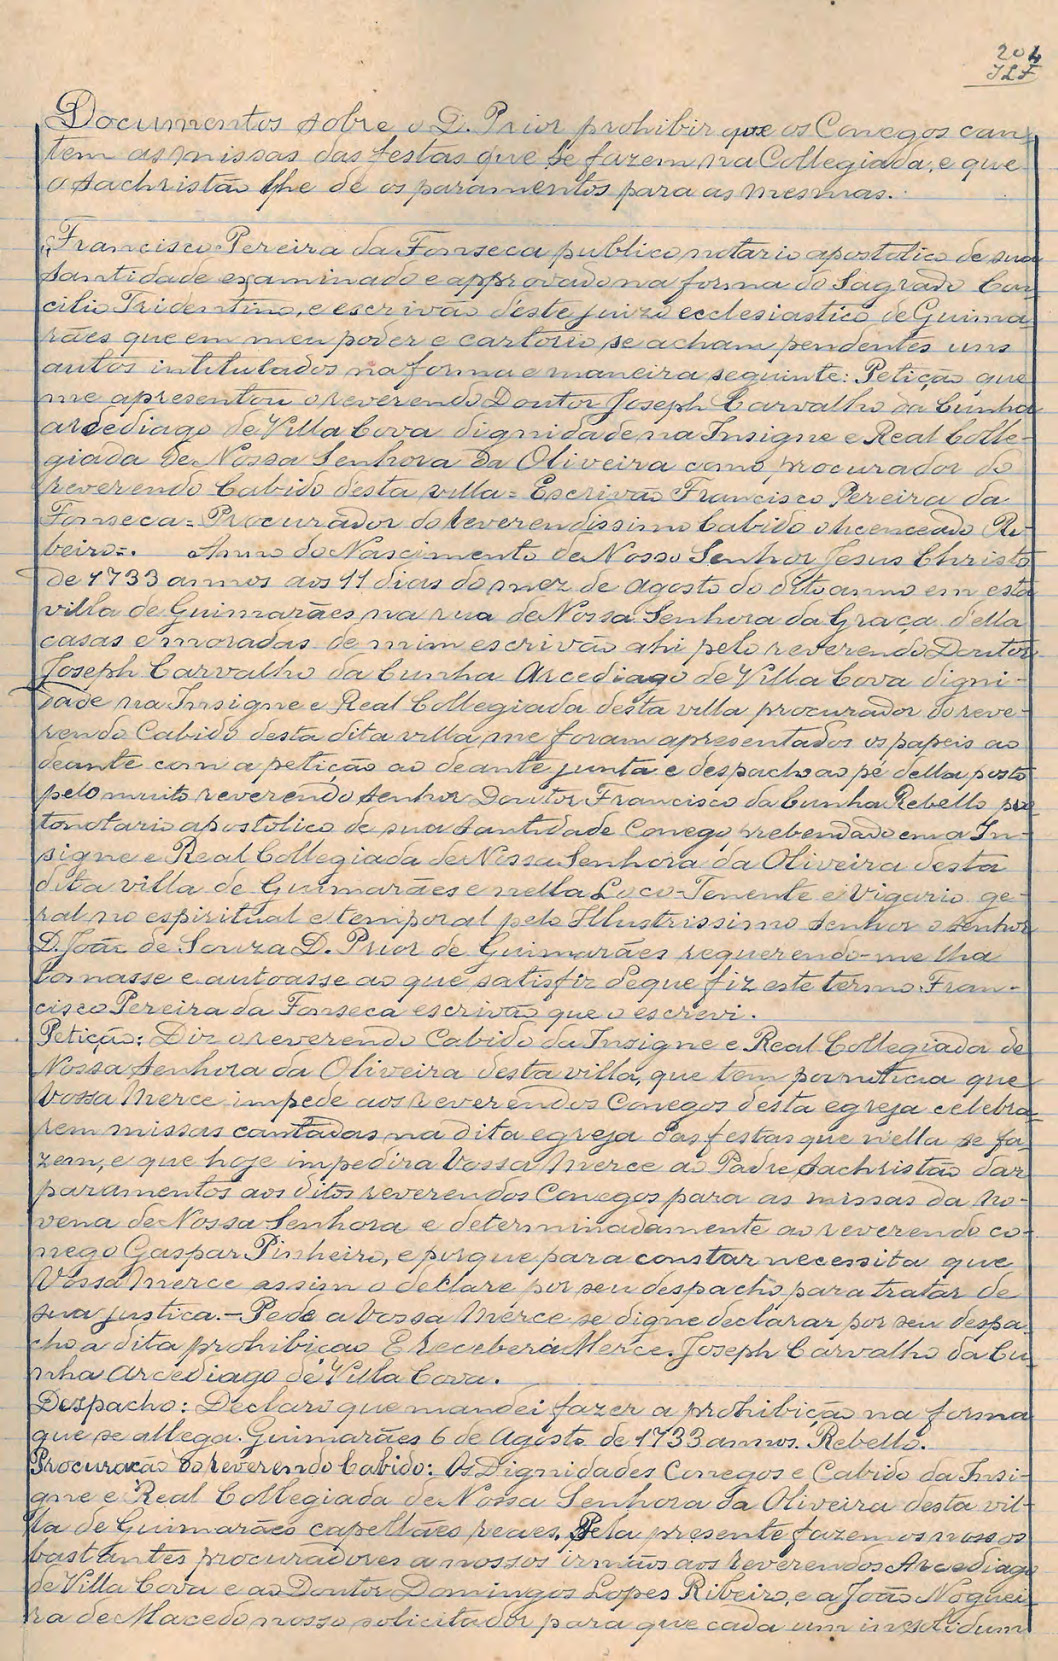 204
JLF
Documentos sobre o D. Prior prohibir que os Conegos can-
tem as missas das festas que se fazem na Collegiada, e que
o Sachristão lhe de os paramentos para as mesmas.
"Francisco Pereira da Fonseca publico notario apostolico de sua
Santidade examinado e approvado na forma do Sagrado Con-
cilio Tridentino, e escrivão deste juizo ecclesiastico de Guima-
rães que em meu poder e cartorio se acham pendentes uns
autos intitulados na forma e maneira seguinte: Petição que
me apresentou o reverendo Doutor Joseph Carvalho da Cunha
arcediago de Villa Cova dignidade na Insigne e Real Colle-
giada de Nossa Senhora da Oliveira como procurador do
reverendo Cabido desta villa = Escrivão Francisco Pereira da
Fonseca = Procurador do reverendissimo Cabido o licenceado Ri-
beiro =. Anno do Nascimento de Nosso Senhor Jesus Christo
de 1733 annos aos 11 dias do mez de agosto do dito anno em esta
villa de Guimarães, na rua de Nossa Senhora da Graça della
casas e moradas de mim escrivão ahi pelo reverendo Doutor
Joseph Carvalho da Cunha Arcediago de Villa Cova digni-
dade na Insigne e Real Collegiada desta villa procurador do reve-
rendo Cabido desta dita villa, me foram apresentados os papeis ao
deante com a petição ao deante junta e despacho ao pé della posto
pelo muito reverendo senhor Doutor Francisco da Cunha Rebello pro
tonotario apostolico de sua Santidade Conego prebendado em a In-
signe e Real Collegiada de Nossa Senhora da Oliveira desta
dita villa de Guimarães e nella Loco-Tenente e Vigario ge-
ral no espiritual e temporal pelo Illustrissimo Senhor o senhor
D. João de Souza D. Prior de Guimarães requerendo-me lha
tomasse e autoasse ao que satisfiz de que fiz este termo. Fran-
cisco Pereira da Fonseca escrivão que o escrevi.
Petição: Diz o reverendo Cabido da Insigne e Real Collegiada de
Nossa Senhora da Oliveira desta villa, que tem por noticia que
Vossa Merce impede aos reverendos Conegos desta egreja celebra-
rem missas cantadas, na dita egreja das festas que nella se fa-
zem, e que hoje impedira Vossa Merce ao Padre Sachristão dar
paramentos aos ditos reverendos Conegos para as missas da No-
vena de Nossa Senhora e determinadamente ao reverendo co-
nego Gaspar Pinheiro, e porque para constar necessita que
Vossa Merce assim o declare por seu despacho para tratar de
sua justica. - Pede a Vossa Merce se digne declarar por seu despa-
cho a dita prohibição E Receberá Merce. Joseph Carvalho da Cu-
nha Arcediago de Villa Cova.
Despacho: Declaro que mandei fazer a prohibição na forma
que se allega. Guimarães 6 de Agosto de 1733 annos. Rebello.
Procuração do reverendo Cabido: Os Dignidades Conegos e Cabido da Insi-
gne e Real Collegiada de Nossa Senhora da Oliveira desta vil-
la de Guimarães capellães reaes. Pela presente fazemos nossos
bastantes procuradores a nossos irmãos aos reverendos Arcediago
de Villa Cova e ao Doutor Domingos Lopes Ribeiro, e a João Noguei-
ra de Macedo nosso solicitador para que cada um in solidum